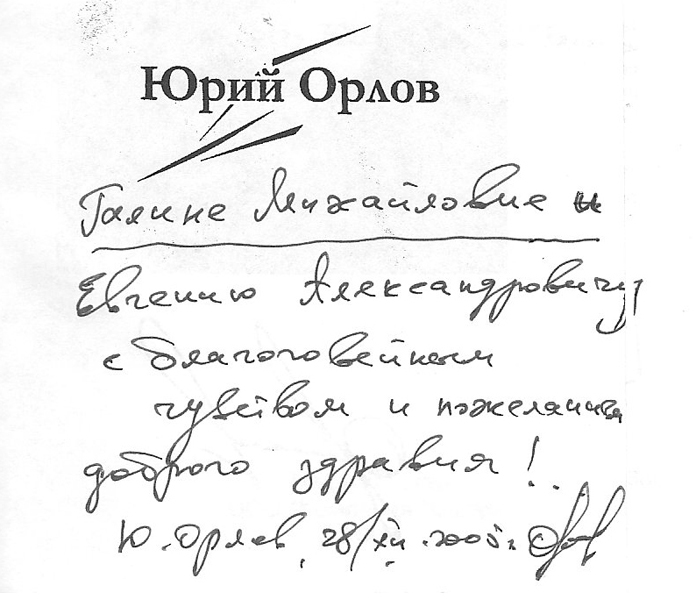 Юрий Орлов
Галине Михайловне и
Евгению Александровичу
с благоговейным
чувством и пожеланием
доброго здравия!
Ю. Орлов, 28/XII. 2005г.